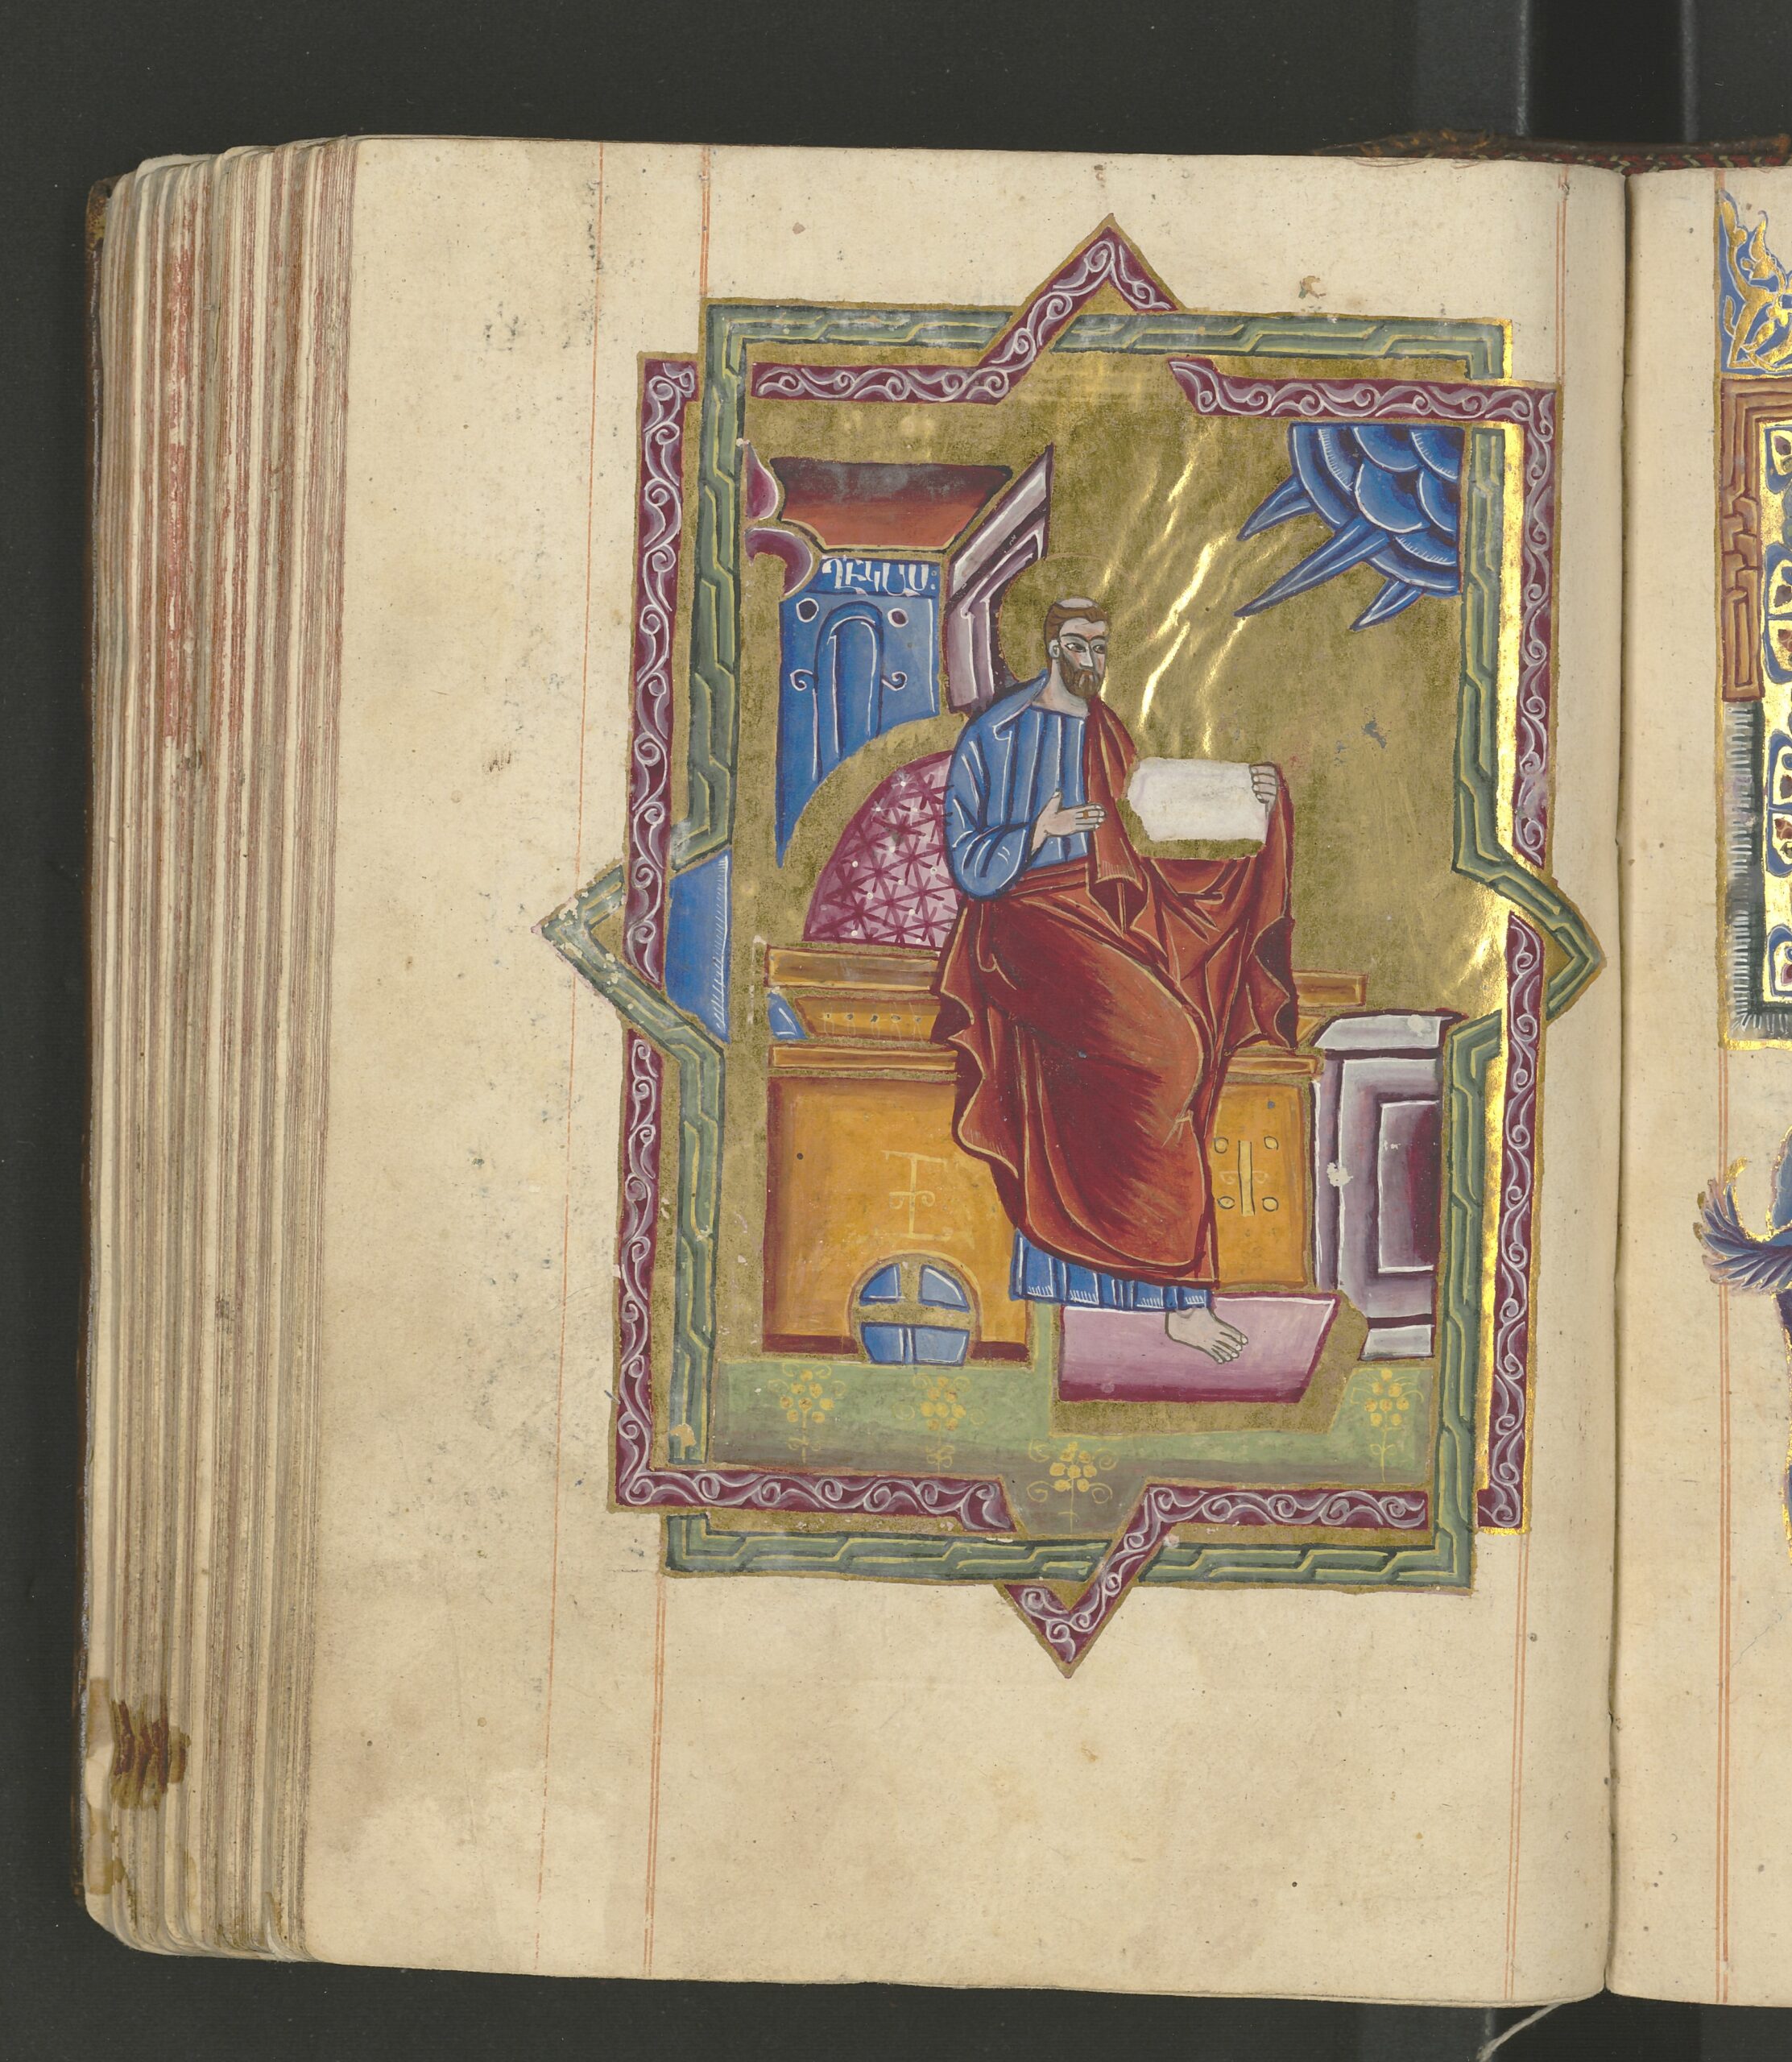 ՂՒԿԱՍ։